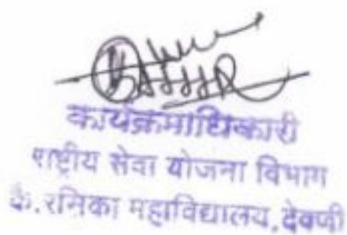 कार्यक्रमाधिकारी
राष्ट्रीय सेवा योजना विभाग
कै.रसिका महाविद्यालय,देवणी